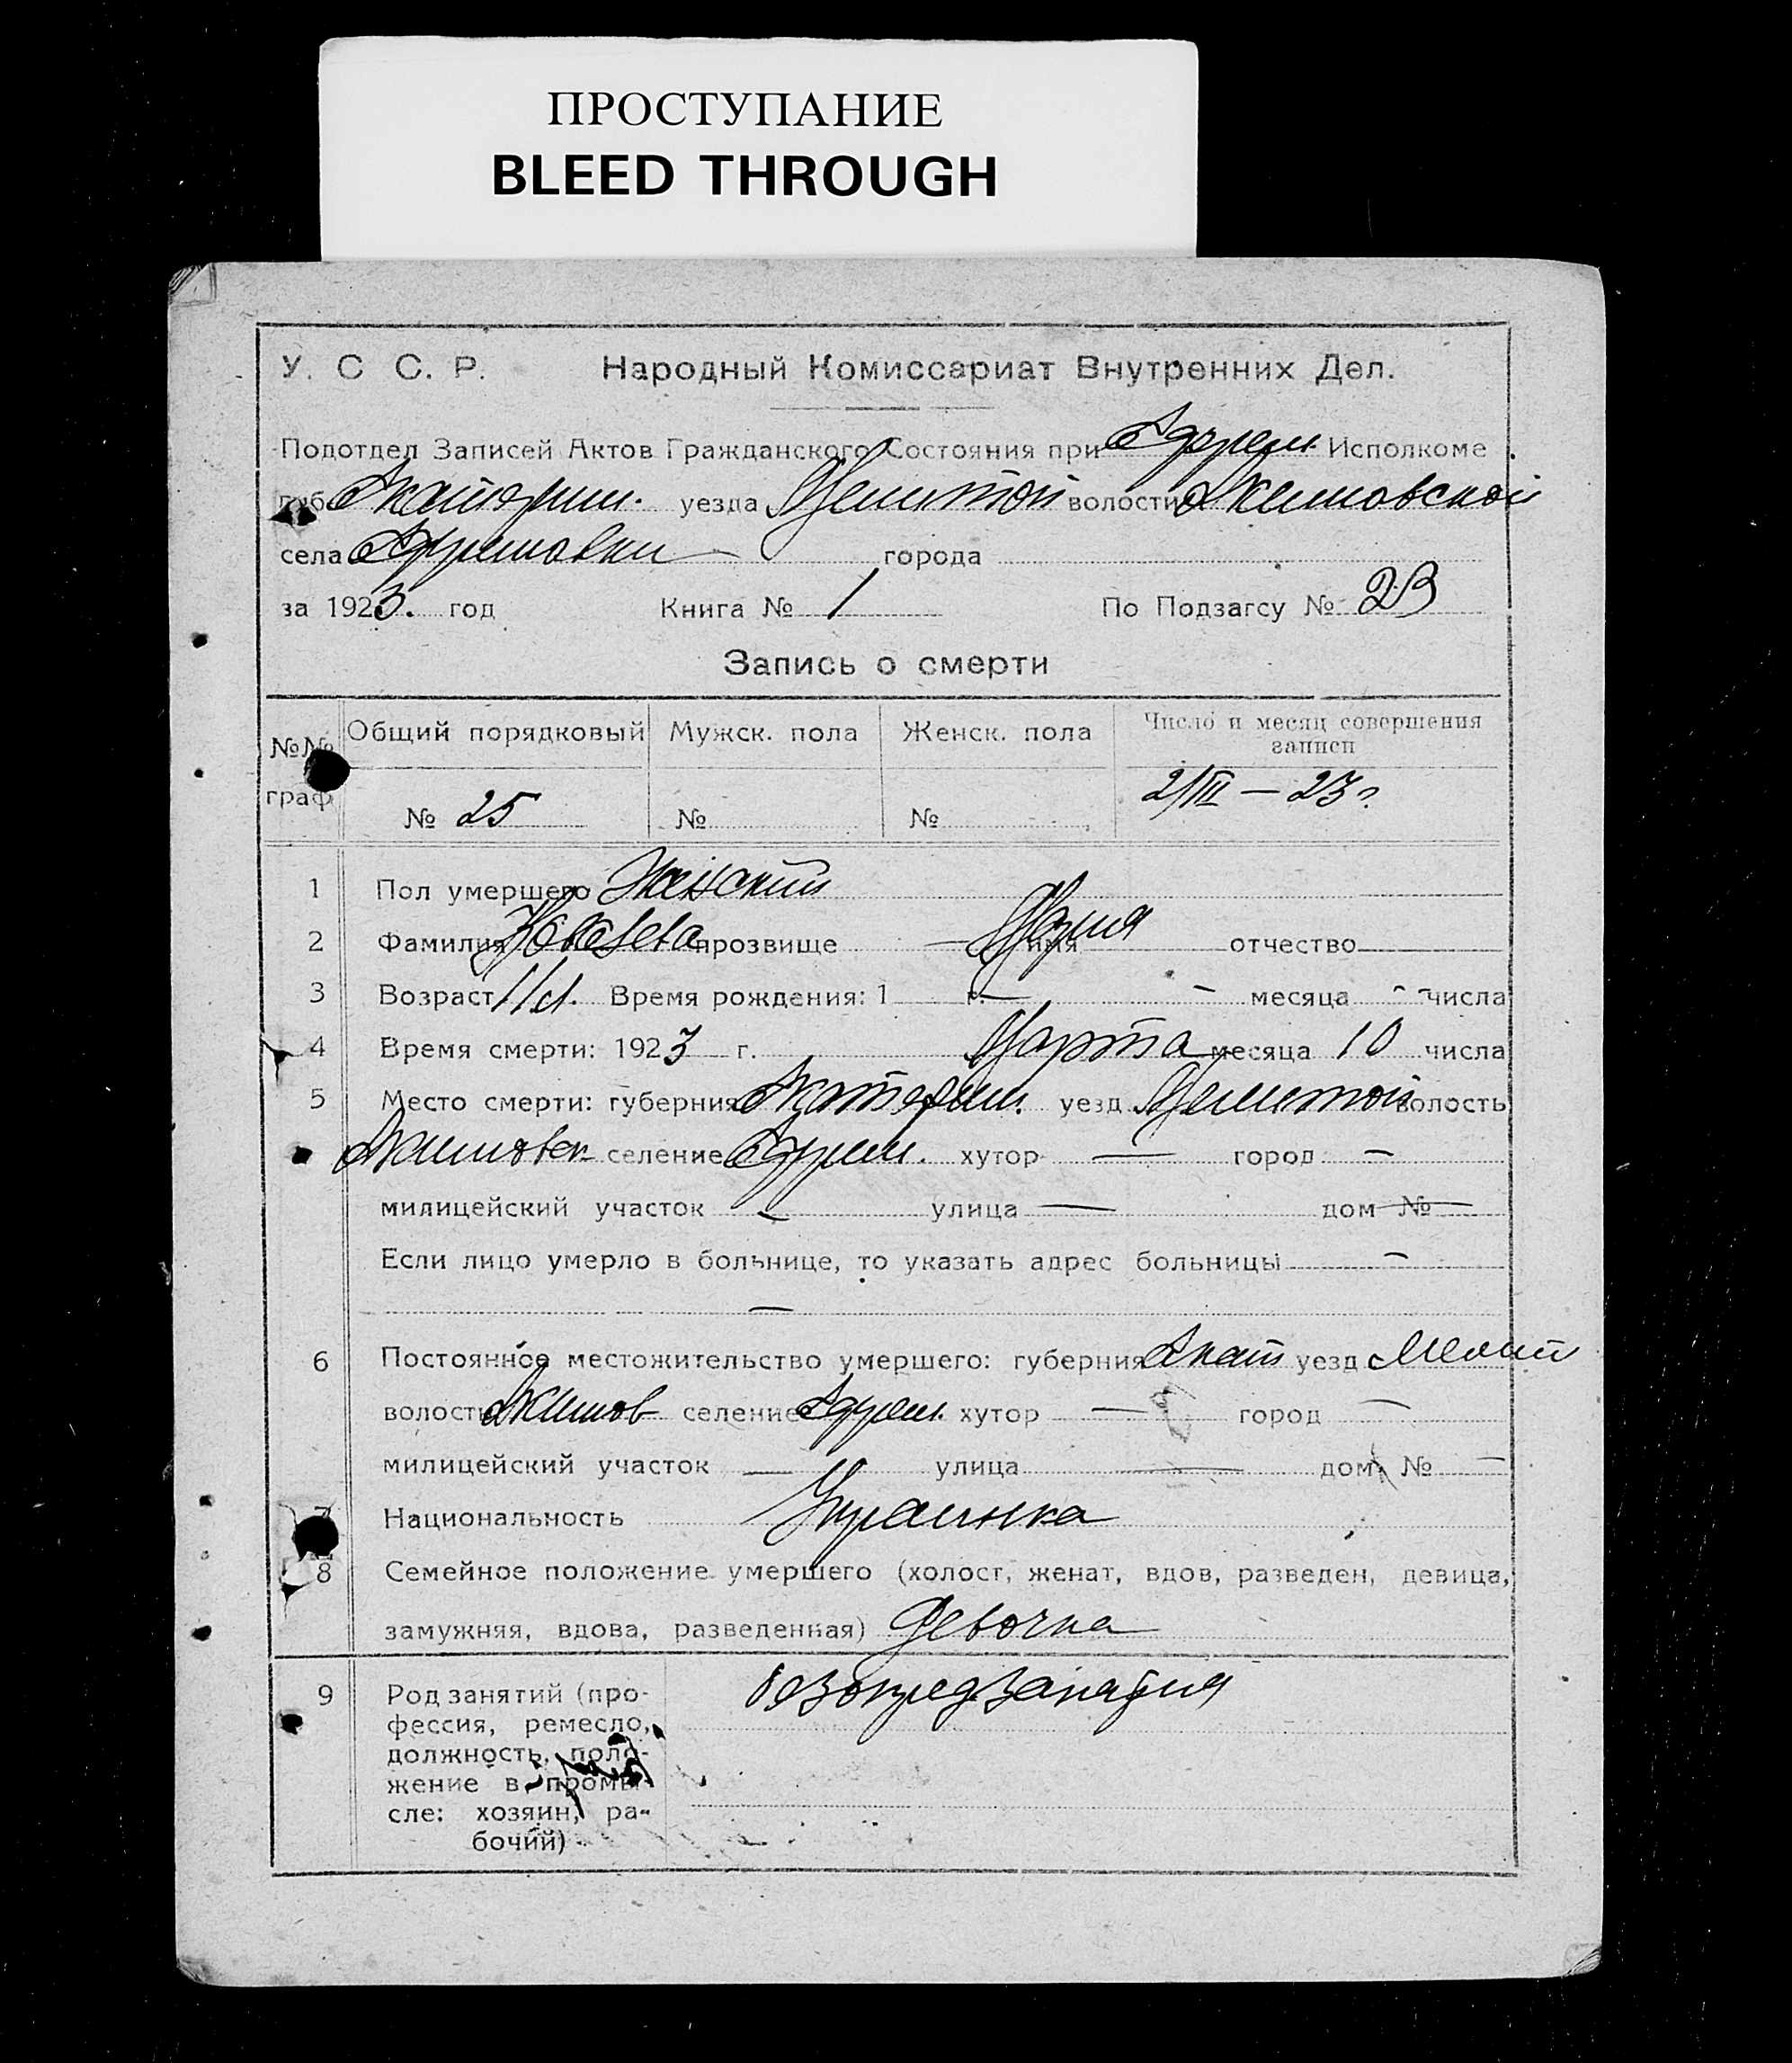 ПРОСТУПАНИЕ
BLEED THROUGH
У. С. С. Р. Народный Комиссариат Внутренних Дел.
Подотдел Записей Актов Гражданского Состояния при Ефрем. Исполкоме
губ Екатерин. уезда Мелитой волости Акимовской
села Ефремовки города
за 1923. год Книга № 1 По Подзагсу № 23
Запись о смерти
№№ граф Общий порядковый Мужск. пола Женск. пола Число и месяц совершения записи
№ 25 № № 2/III — 23 г.
1 Пол умершего Женский
2 Фамилия прозвище — имя Мария отчество —
3 Возраст Время рождения: 1 г. — - месяца - - числа
4 Время смерти: 1923 г. Марта месяца 10 числа
5 Место смерти: губерния Екатерин. уезд Мелитой волость
Акимовск селение Ефрем. хутор — город —
милицейский участок — улица — дом № —
Если лицо умерло в больнице, то указать адрес больницы —
—
6 Постоянное местожительство умершего: губерния Екат уезд Мелит
волость Акимов селение Ефрем. хутор — город —
милицейский участок — улица — дом № —
7 Национальность Украинка
8 Семейное положение умершего (холост, женат, вдов, разведен, девица,
замужняя, вдова, разведенная) Девочка
9 Род занятий (про-
фессия, ремесло,
должность, поло-
жение в промы-
сле: хозяин, ра-
бочий)